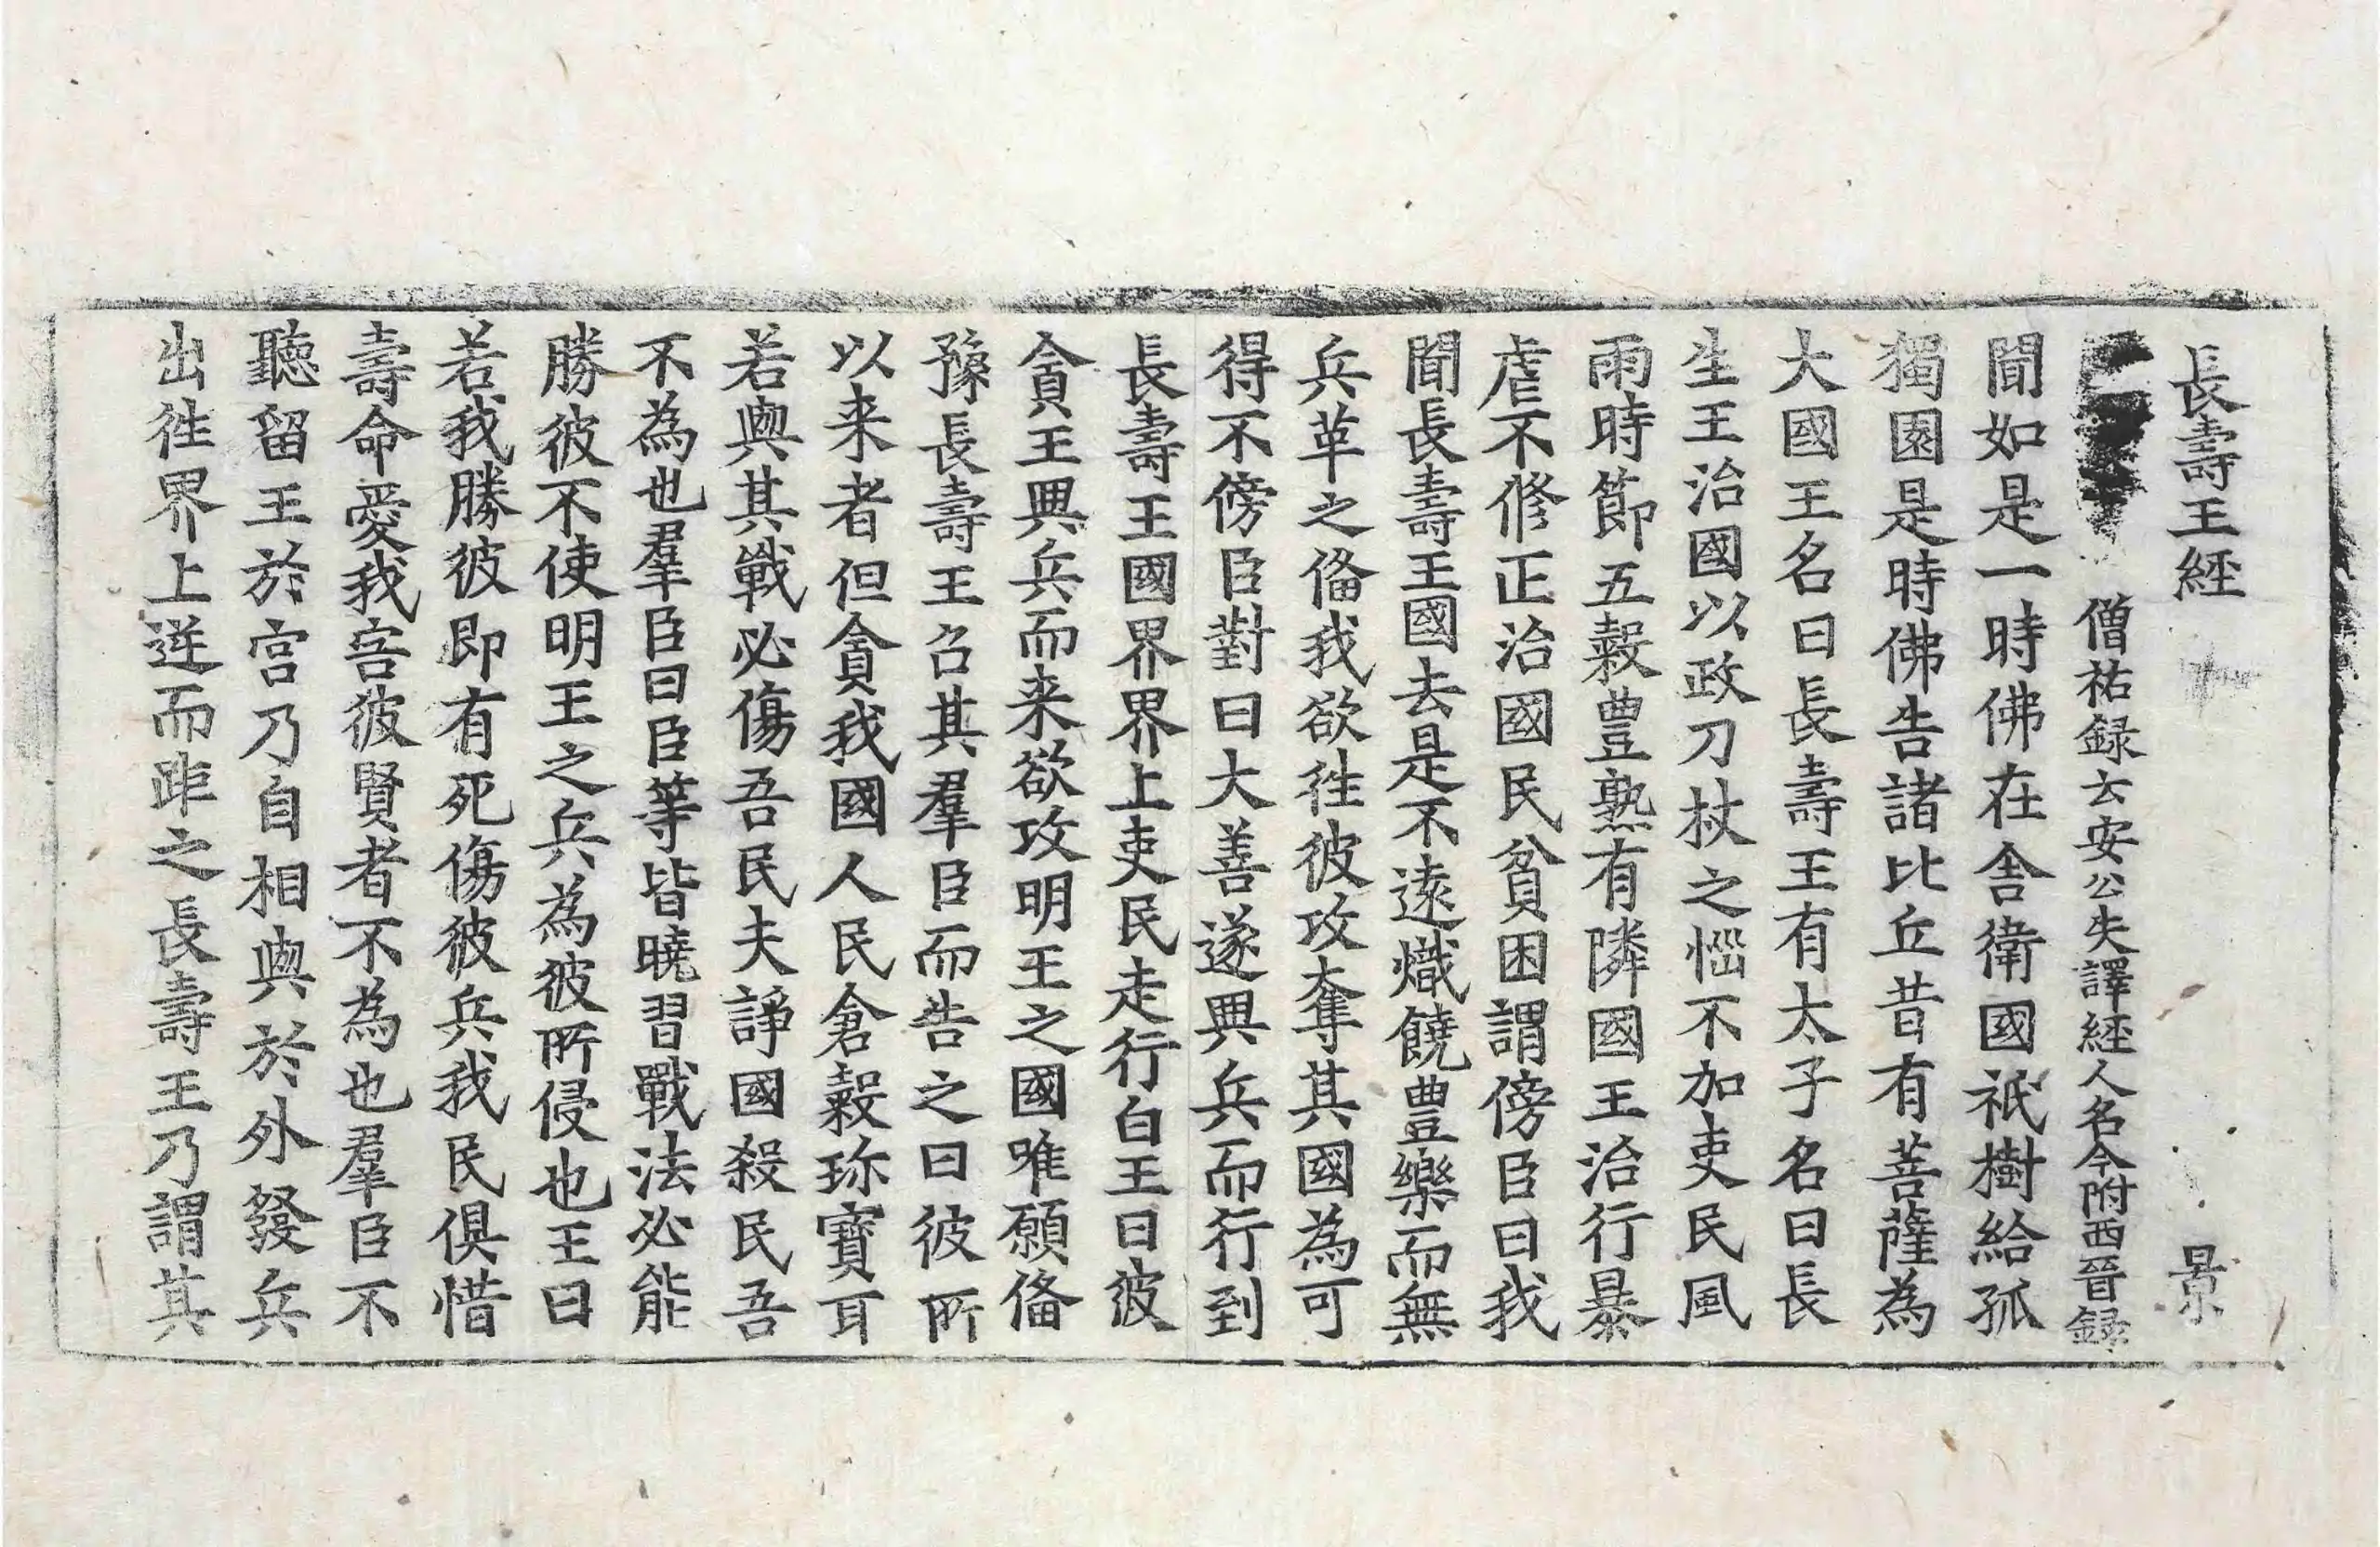 長壽王經 景
僧祐録云安公失譯經人名今附西晉録
聞如是一時佛在舍衛國祇樹給孤
獨園是時佛告諸比丘昔有菩薩為
大國王名曰長壽王有太子名曰長
生王治國以政刀杖之惱不加吏民風
雨時節五穀豊熟有隣國王治行暴
虐不修正治國民貧困謂傍臣曰我
聞長壽王國去是不遠熾饒豊樂而無
兵革之俻我欲徃彼攻奪其國為可
得不傍臣對曰大善遂興兵而行到
長壽王國界界上吏民走行白王曰彼
貪王興兵而来欲攻明王之國唯願俻
豫長壽王召其羣臣而告之曰彼所
以来者但貪我國人民倉穀珎寶耳
若與其戰必傷吾民夫諍國殺民吾
不為也羣臣曰臣等皆曉習戰法必能
勝彼不使明王之兵為彼所侵也王曰
若我勝彼即有死傷彼兵我民俱惜
壽命愛我害彼賢者不為也羣臣不
聽留王於宫乃自相與於外發兵
出徃界上逆而距之長壽王乃謂其